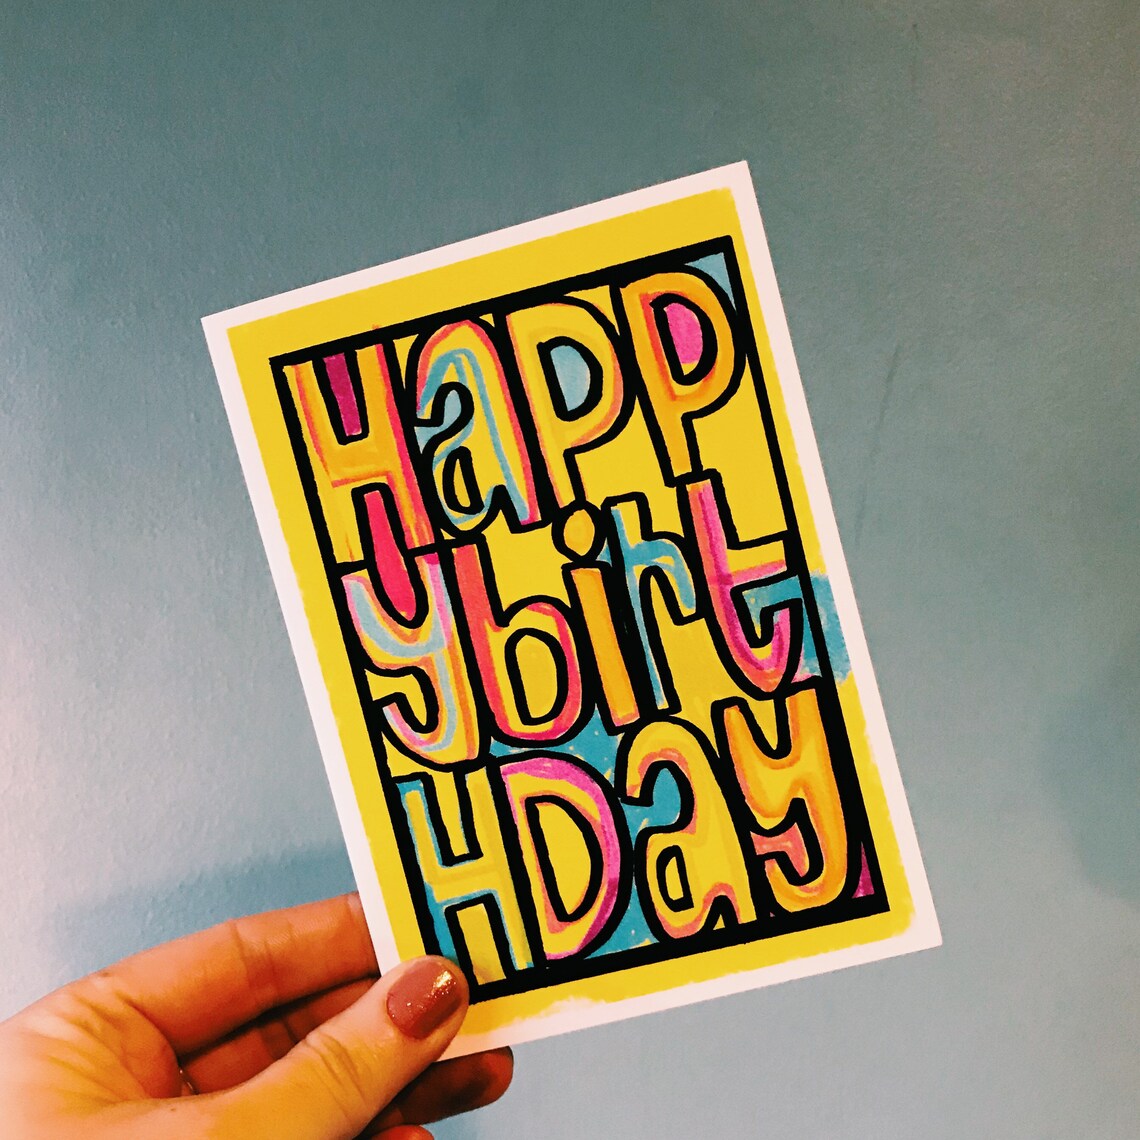 Happ
ybirt
HDay